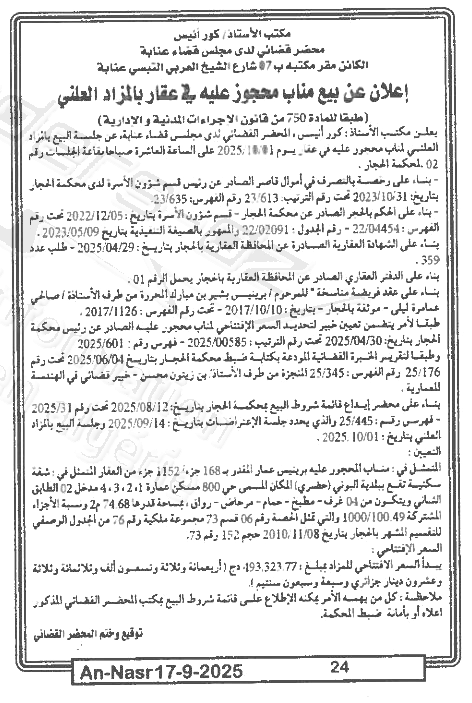 مكتب الأستاذ/ كور أنيس
محضر قضائي لدى مجلس قضاء عنابة
الكائن مقر مكتبه ب 07 شارع الشيخ العربي التبسي عنابة
إعلان عن بيع مناب محجوز عليه في عقار بالمزاد العلني
(طبقا للمادة 750 من قانون الاجراءات المدنية و الادارية)
يعلن مكتب الأستاذ: كور أنيس، المحضر القضائي لدى مجلس قضاء عنابة، عن جلسة البيع بالمزاد
العلني لمناب محجوز عليه في عقار يوم 2025/10/01 على الساعة العاشرة صباحا بقاعة الجلسات رقم
02 لمحكمة الحجار.
- بناء على رخصة بالتصرف في أموال قاصر الصادر عن رئيس قسم شؤون الأسرة لدى محكمة الحجار
بتاريخ: 2023/10/31 تحت رقم الترتيب: 23/613 رقم الفهرس: 23/635.
- بناء على الحكم بالحجر الصادر عن محكمة الحجار - قسم شؤون الأسرة بتاريخ: 2022/12/05 تحت رقم
الفهرس: 22/04454 - رقم الجدول: 22/02091 والممهور بالصيغة التنفيذية بتاريخ 2023/05/09.
بناء على الشهادة العقارية الصادرة عن المحافظة العقارية بالحجار بتاريخ: 2025/04/29 - طلب عدد
359
بناء على الدفتر العقاري الصادر عن المحافظة العقارية بالحجار يحمل الرقم 01.
بناء على عقد فريضة مناسخة " للمرحوم / برينيس بشير بن مبارك المحررة من طرف الأستاذة / صالحي
عمامرة ليلى - موثقة بالحجار - بتاريخ: 2017/10/10 - تحت رقم الفهرس: 2017/1126.
طبقا لأمر يتضمن تعيين خبير لتحديد السعر الإفتتاحي لمناب محجوز عليه الصادر عن رئيس محكمة
الحجار بتاريخ: 2025/04/30 تحت رقم الترتيب: 2025/00585 - فهرس رقم: 2025/601
وطبقا لتقرير الخبرة القضائية المودعة بكتابة ضبط محكمة الحجار بتاريخ 2025/06/04 تحت رقم
25/176 رقم الفهرس: 25/345 المنجزة من طرف الأستاذ: بن زيتون محسن - خبير قضائي في الهندسة
المعمارية.
بناء على محضر إيداع قائمة شروط البيع بمحكمة الحجار بتاريخ: 2025/08/12 تحت رقم 2025/31
- فهرس رقم: 25/445 والذي يحدد جلسة الإعتراضات بتاريخ: 2025/09/14 وجلسة البيع بالمزاد
العلني بتاريخ: 2025/10/01.
التعيين:
المتمثل في: مناب المحجور عليه برينيس عمار المقدر بـ 168 جزء/1152 جزء من العقار المتمثل في: شقة
سكنية تقع ببلدية البوني (حضري) المكان المسمى حي 800 مسكن عمارة 1، 2، 3، 4 مدخل 02 الطابق
الثاني ويتكون من 04 غرف - مطبخ - حمام - مرحاض - رواق، بمساحة قدرها 74.68 م2 ونسبة الأجزاء
المشتركة 1000/100.49 والتي تمثل الحصة رقم 06 قسم 73 مجموعة ملكية رقم 76 من الجدول الوصفي
للتقسيم المشهر بالحجار بتاريخ 2010/11/08 حجم 152 رقم 73.
السعر الإفتتاحي:
يبدأ السعر الافتتاحي للمزاد بمبلغ: 493.323.77 دج (أربعمائة وثلاثة وتسعون ألف وثلاثمائة وثلاثة
وعشرون دينار جزائري وسبعة وسبعون سنتيم).
ملاحظة: كل من يهمه الأمر يمكنه الإطلاع على قائمة شروط البيع بمكتب المحضر القضائي المذكور
اعلاه أو بأمانة ضبط المحكمة.
توقيع وختم المحضر القضائي
An-Nasr17-9-2025 24